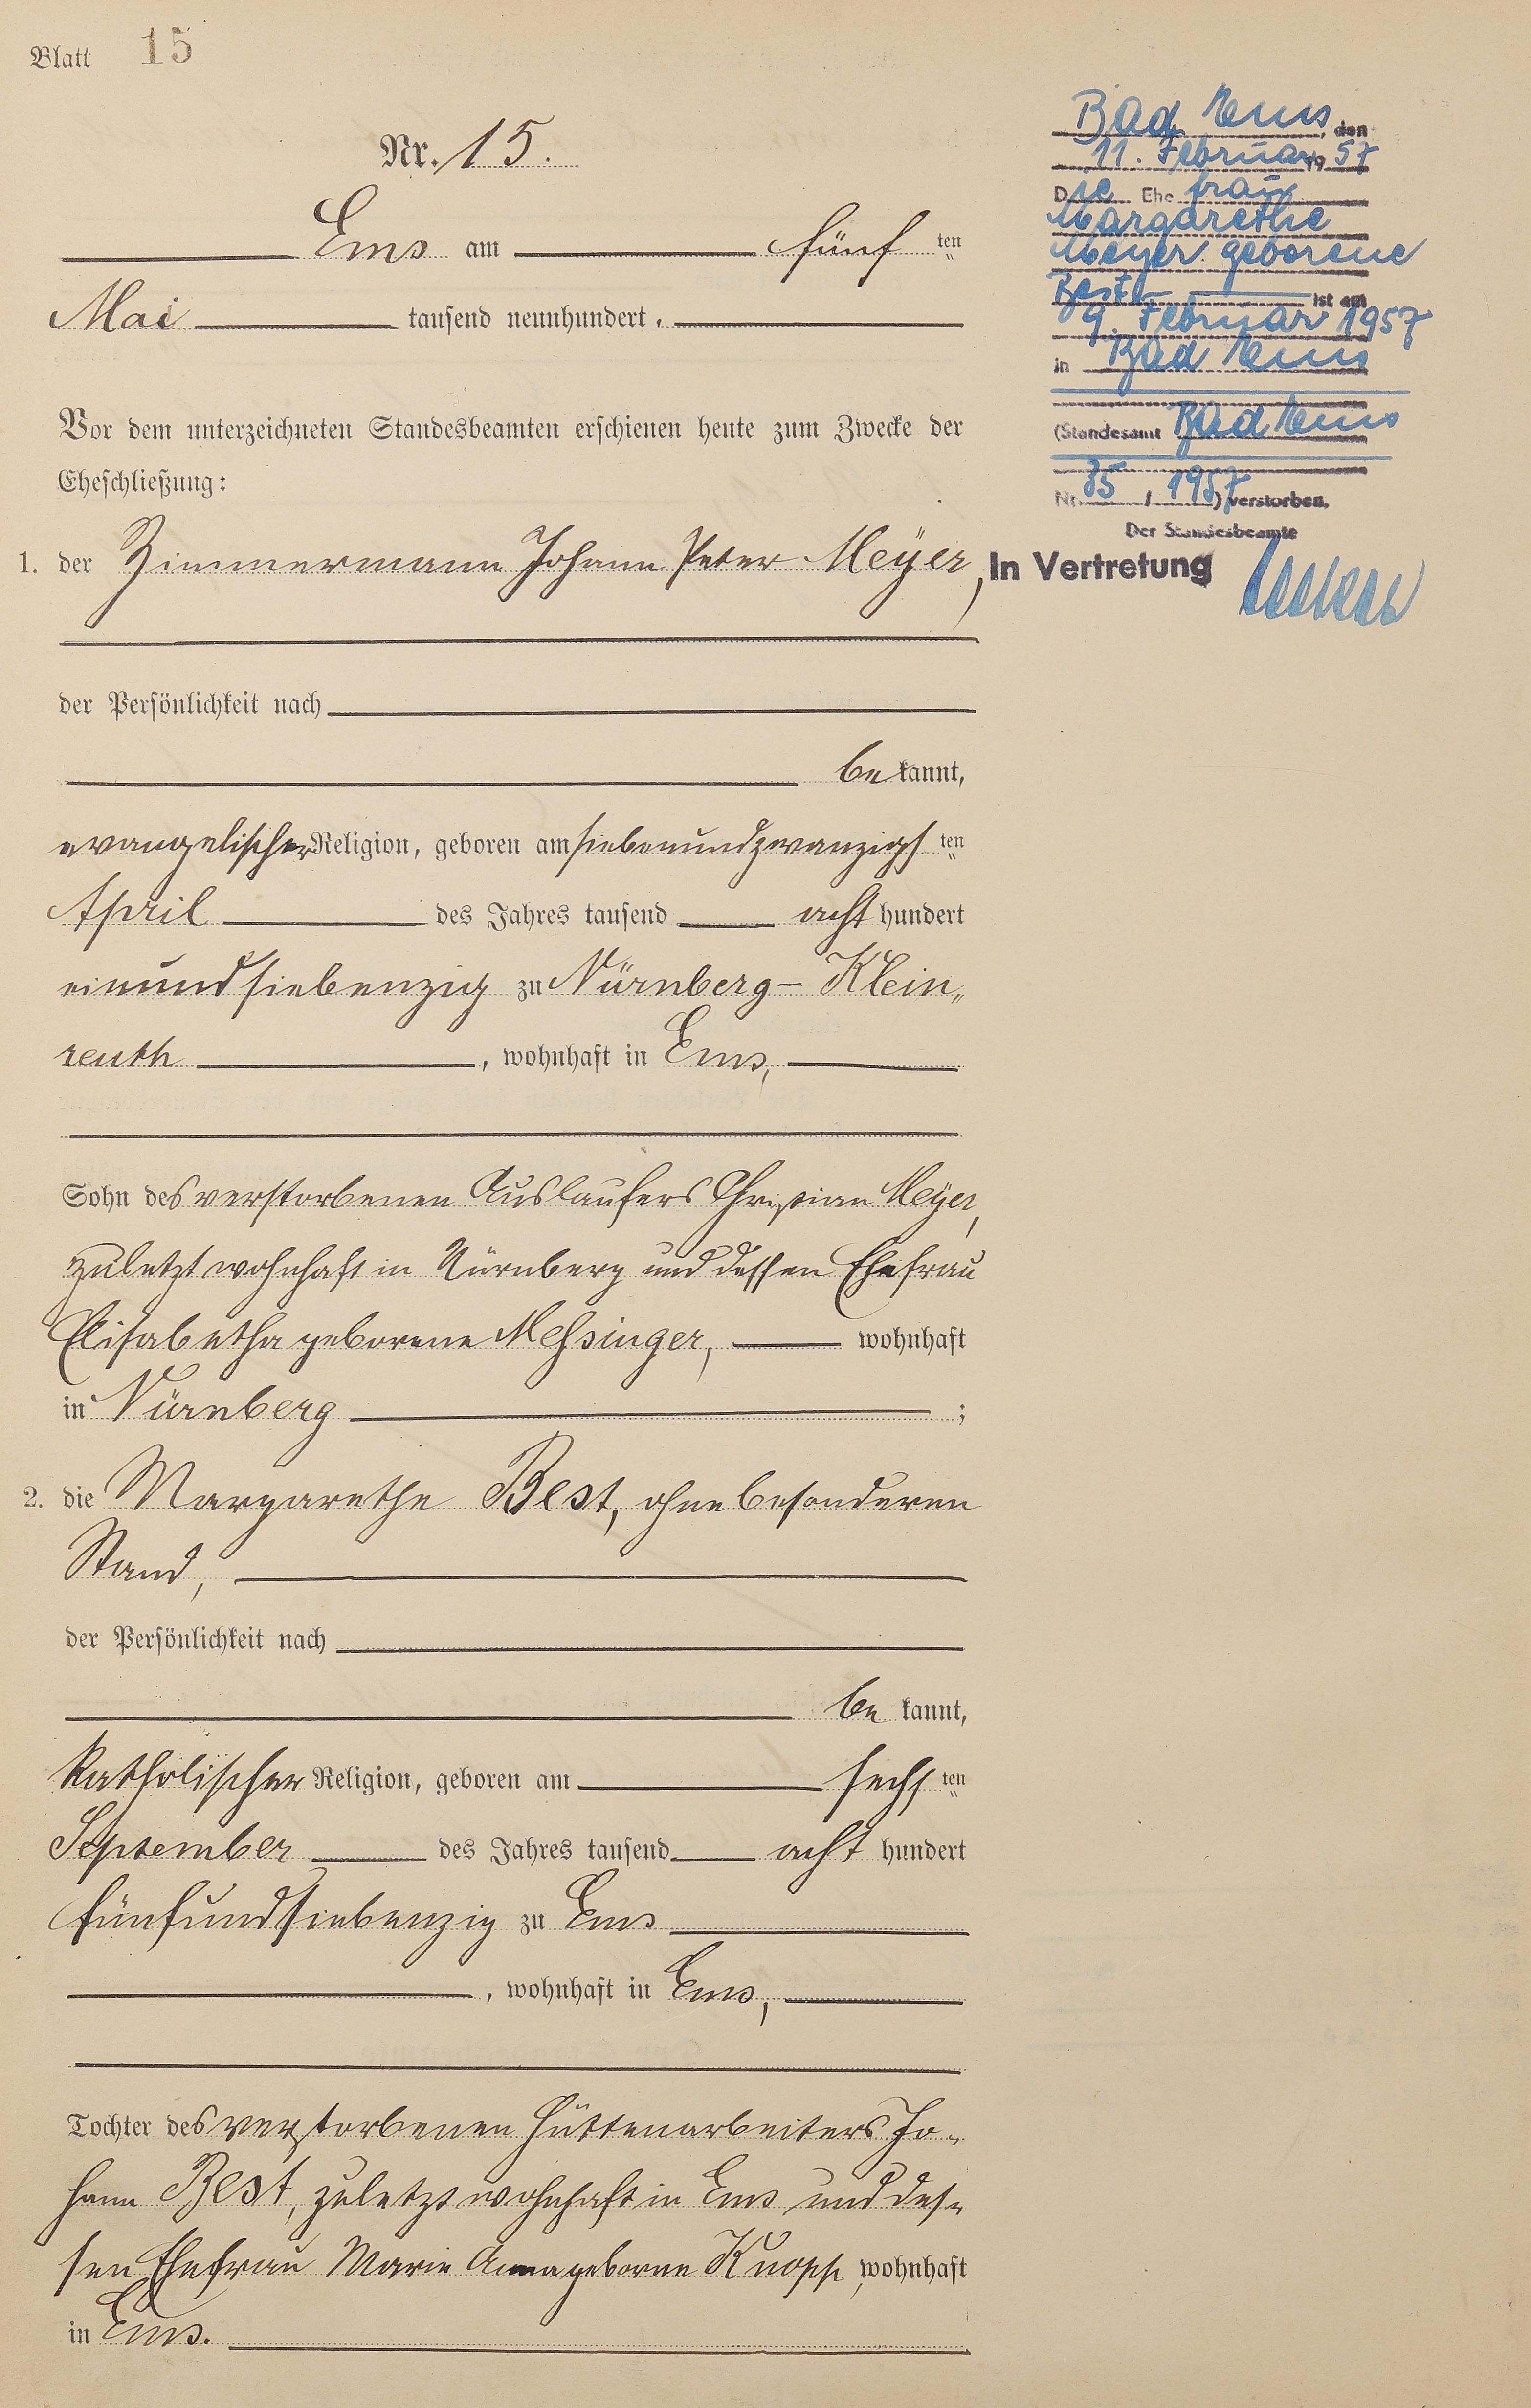 Blatt 15
Nr. 15.
Ems am fünf ten
Mai tausend neunhundert.
Vor dem unterzeichneten Standesbeamten erschienen heute zum Zwecke der
Eheschließung:
1. der Zimmermann Johann Peter Meÿer,
der Persönlichkeit nach
be kannt,
evangelischer Religion, geboren am siebenundzwanzigs ten
April des Jahres tausend acht hundert
einundsiebenzig zu Nürnberg - Klein„
reuth, wohnhaft in Ems,
Sohn des verstorbenen Auslaufers Christian Meÿer,
zuletzt wohnhaft in Nürnberg und dessen Ehefrau
Elisabetha geborene Meßsinger, wohnhaft
in Nürnberg ;
2. die Margarethe Best, ohne besonderen
Stand,
der Persönlichkeit nach
be kannt,
katholischer Religion, geboren am sechs ten
September des Jahres tausend acht hundert
fünfundsiebenzig zu Ems
, wohnhaft in Ems,
Tochter des verstorbenen Hüttenarbeiters Jo„
hann Best, zuletzt wohnhaft in Ems und des„
sen Ehefrau Marie Anna geborne Knopp, wohnhaft
in Ems.
Bad Ems, den
11. Februar 1957
Die Ehefrau
Margarethe
Meyer geborene
Best ist am
9. Februar 1957
in Bad Ems
(Standesamt Bad Ems
Nr. 35 / 1957) verstorben.
Der Standesbeamte
In Vertretung